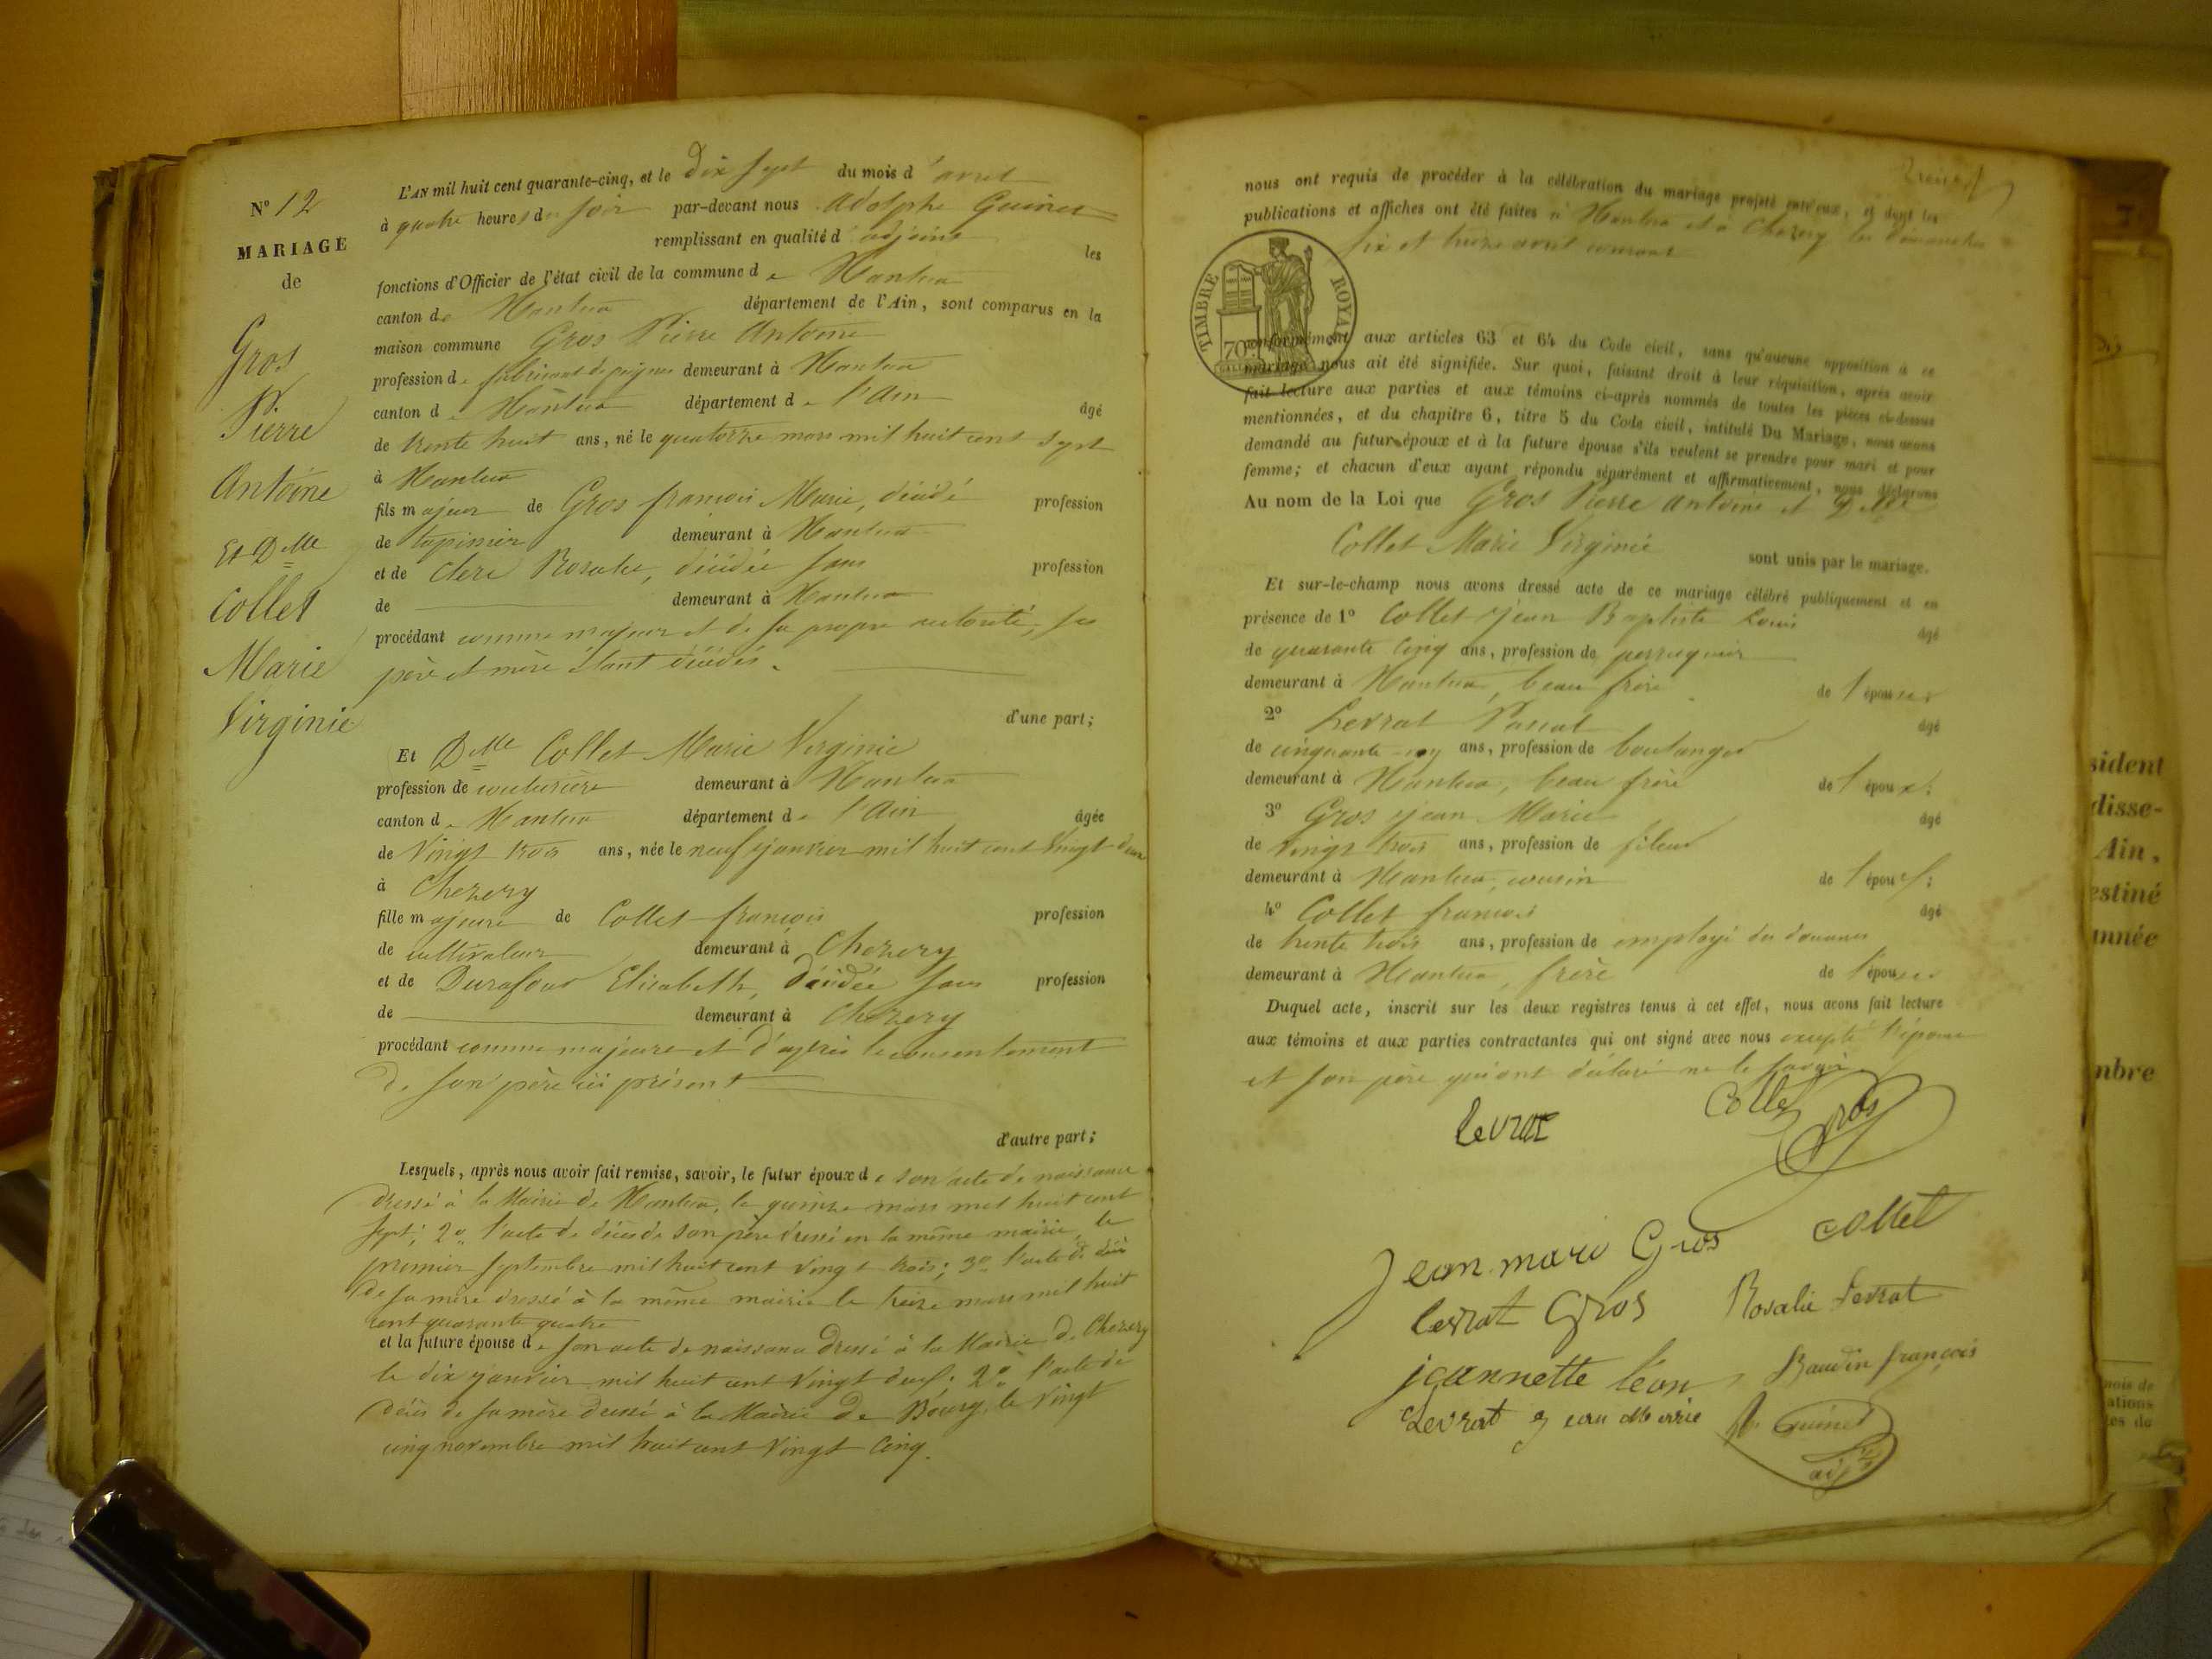 N° 12
MARIAGE
de
Gros
Pierre
Antoine
Et Dlle
Collet
Marie
Virginie
L'AN mil huit cent quarante-cinq, et le dix sept du mois d'avril
à quatre heures du soir par-devant nous Adolphe Guinet
remplissant en qualité d'adjoint les
fonctions d'Officier de l'état civil de la commune de Nantua
canton de Nantua département de l'Ain, sont comparus en la
maison commune Gros Pierre Antoine
profession de fabricant de peignes demeurant à Nantua
canton de Nantua département de l'Ain âgé
de trente huit ans, né le quatorze mars mil huit cent sept
à Nantua
fils majeur de Gros françois Marie, décédé profession
de tapissier demeurant à Nantua
et de Clerc Rosalie, décédée sans profession
de demeurant à Nantua
procédant comme majeur et de sa propre autorité, ses
père et mère étant décédés.
d'une part;
Et Dlle Collet Marie Virginie
profession de couturière demeurant à Nantua
canton de Nantua département de l'Ain âgée
de vingt trois ans, née le neuf janvier mil huit cent vingt deux
à Chezery
fille majeure de Collet françois profession
de cultivateur demeurant à Chezery
et de Durafour Elisabeth, décédée sans profession
de demeurant à Chezery
procédant comme majeure et d'après le consentement
de son père ici présent
d'autre part;
Lesquels, après nous avoir fait remise, savoir, le futur époux de son acte de naissance
dressé à la Mairie de Nantua, le quinze mars mil huit cent
sept; 2° l'acte de décès de son père dressé en la même mairie, le
premier septembre mil huit cent vingt trois; 3° l'acte de décès
de sa mère dressé à la même mairie le treize mars mil huit
cent quarante quatre
et la future épouse de son acte de naissance dressé à la Mairie de Chezery
le dix janvier mil huit cent vingt deux; 2° l'acte de
décès de sa mère dressé à la Mairie de Bourg, le vingt
cinq novembre mil huit cent vingt cinq.
nous ont requis de procéder à la célébration du mariage projeté entr'eux, et dont les
publications et affiches ont été faites à Nantua et à Chezery les dimanches
six et treize avril courant
TIMBRE ROYAL
70
conformément aux articles 63 et 64 du Code civil, sans qu'aucune opposition à ce
mariage nous ait été signifiée. Sur quoi, faisant droit à leur réquisition, après avoir
fait lecture aux parties et aux témoins ci-après nommés de toutes les pièces ci-dessus
mentionnées, et du chapitre 6, titre 5 du Code civil, intitulé Du Mariage, nous avons
demandé au futur époux et à la future épouse s'ils veulent se prendre pour mari et pour
femme; et chacun d'eux ayant répondu séparément et affirmativement, nous déclarons
Au nom de la Loi que Gros Pierre Antoine et Dlle
Collet Marie Virginie sont unis par le mariage.
Et sur-le-champ nous avons dressé acte de ce mariage célébré publiquement et en
présence de 1° Collet Jean Baptiste Louis âgé
de quarante cinq ans, profession de perruquier
demeurant à Nantua, beau frère de l'épouse
2° Levrat Pascal âgé
de cinquante ans, profession de boulanger
demeurant à Nantua, beau frère de l'époux;
3° Gros Jean Marie âgé
de vingt trois ans, profession de fileur
demeurant à Nantua, cousin de l'époux;
4° Collet françois âgé
de trente trois ans, profession de employé des douanes
demeurant à Nantua, frère de l'épouse
Duquel acte, inscrit sur les deux registres tenus à cet effet, nous avons fait lecture
aux témoins et aux parties contractantes qui ont signé avec nous excepté l'épouse
et son père qui ont déclaré ne le savoir
Levrat Collet Gros
Jean marie Gros Collet
Levrat Gros Rosalie Levrat
jeannette léon Baudin françois
Levrat jean Marie Guinet
adjt
sident
disse-
Ain,
estiné
année
mbre
mois de
ations
tes de